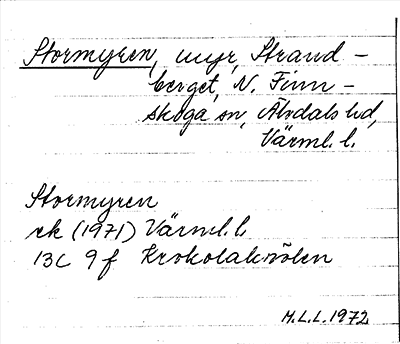 Stormyren, myr, Strand-
berget, N. Finn-
skoga sn, Älvdals hd,
Värml. l.
Stormyren
ek (1971) Värml. l.
13C 9f Krokolakvålen
M.L.L. 1972